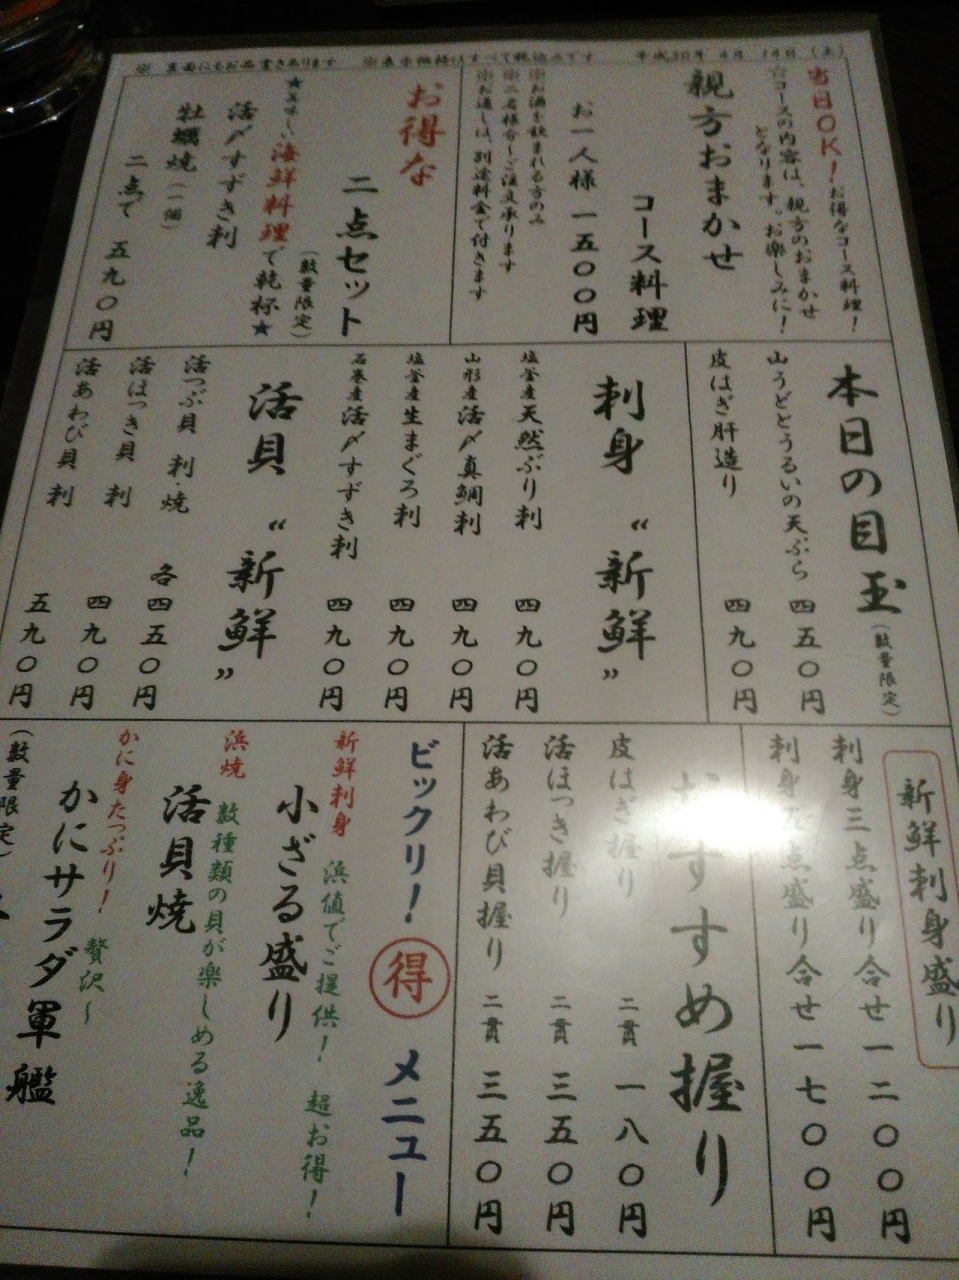 ※ 裏面にもお品書きあります ※表示価格はすべて税込みです 平成30年 4月 14日 (土)
当日OK!お得なコース料理!
☆コースの内容は、親方のおまかせ
となります。お楽しみに!
親方おまかせ
コース料理
お一人様 一五〇〇円
※お酒を飲まれる方のみ
※二名様分〜ご注文承ります
※お通しは、別途料金で付きます
お得な
二点セット
(数量限定)
★美味しい海鮮料理で乾杯★
活〆すずき刺
牡蠣焼(一個)
二点で 五九〇円
本日の目玉(数量限定)
山うどとうるいの天ぷら 四五〇円
皮はぎ肝造り 四九〇円
刺身 “新鮮”
塩釜産天然ぶり刺 四九〇円
山形産活〆真鯛刺 四九〇円
塩釜産生まぐろ刺 四九〇円
石巻産活〆すずき刺 四九〇円
活貝 “新鮮”
活つぶ貝 刺・焼 各四五〇円
活ほっき貝 刺 四九〇円
活あわび貝 刺 五九〇円
新鮮刺身盛り
刺身三点盛り合せ 一二〇〇円
刺身五点盛り合せ 一七〇〇円
おすすめ握り
皮はぎ握り 二貫 一八〇円
活ほっき握り 二貫 三五〇円
活あわび貝握り 二貫 三五〇円
ビックリ!得 メニュー
新鮮刺身 浜値でご提供! 超お得!
小ざる盛り
浜焼 数種類の貝が楽しめる逸品!
活貝焼
かに身たっぷり! 贅沢〜
かにサラダ軍艦
(数量限定)